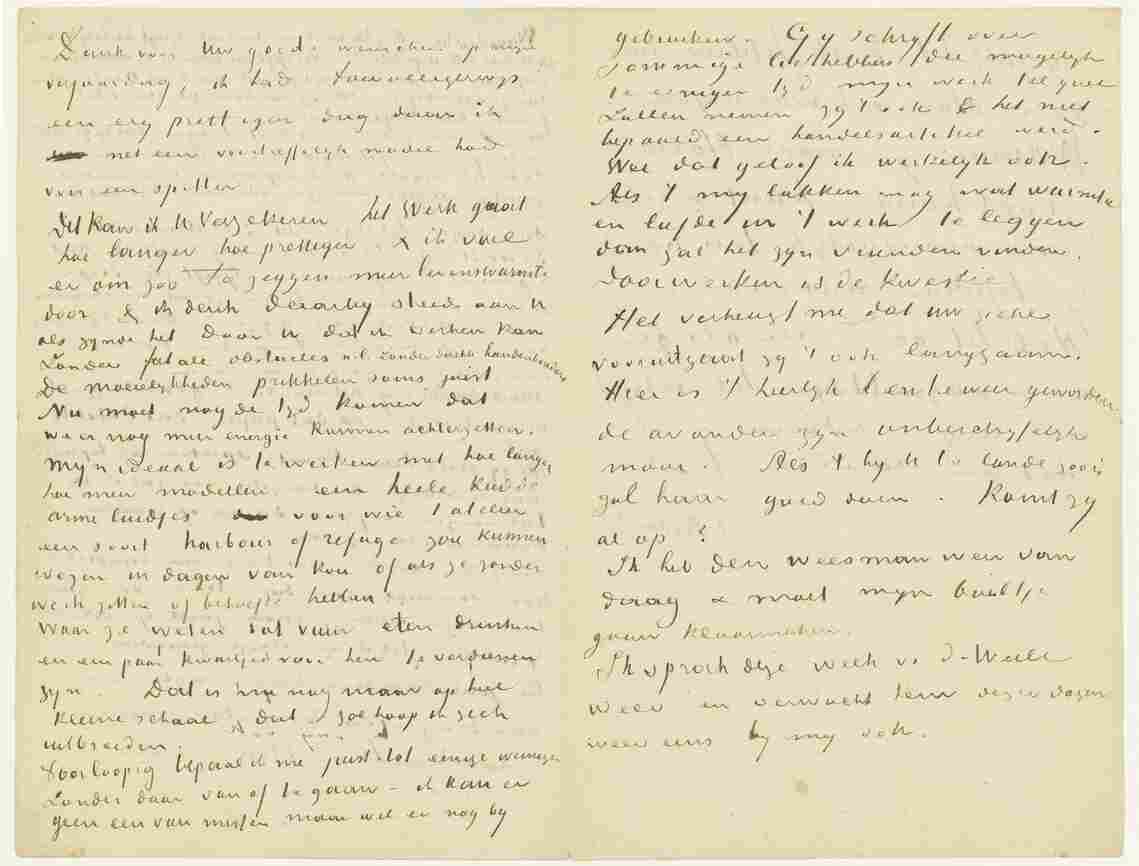 Dank voor Uw goede wenschen op mijn
verjaardag, ik had toevalligerwijs
een erg prettigen dag daar ik
net een voortreffelijk model had
voor een spitter
Dit kan ik U verzekeren het werk gaat
hoe langer hoe prettiger & ik voel
er om zoo te zeggen meer levenswarmte
door & ik denk daarby steeds aan U
als zynde het door U dat ik werken kan
zonder fatale obstacles nl. zonder
De moeielykheden prikkelen soms juist
Nu moet nog de tyd komen dat
weer nog meer energie kunnen achterzetten.
Myn ideaal is te werken met hoe langer
hoe meer modellen een heele kudde
arme luidjes voor wie 't atelier
een soort harbour of refuge zou kunnen
wezen in dagen van kou of als ze zonder
werk zitten of behoefte hebben
Waar ze weten dat vuur eten drinken
en een paar kwartjes voor hen te verdienen
zyn. Dat is nu nog maar op heel
kleine schaal dat zoo hoop ik zich
uitbreiden.
Voorloopig bepaal ik me juist tot eenige weinigen
Zonder daar van af te gaan – ik kan er
geen een van missen maar wel er nog by
gebruiken. Gy schryft over
sommige liefhebbers die mogelyk
te eeniger tyd myn werk
zullen nemen zy 't ook het niet
bepaald een handelsartikel werd.
Wel dat geloof ik werkelyk ook.
Als 't my lukken mag wat warmte
en liefde in 't werk te leggen
dan zal het zyn vrienden vinden.
Doorwerken is de kwestie
Het verheugt me dat uw zieke
vooruitgaat zy 't ook langzaam.
Hier is 't heerlyk lenteweer geworden
de avonden zyn onbeschryfelyk
mooi. Als 't by U te lande zoo is
zal haar goed doen. Komt zy
al op?
Ik heb den weesman weer van
daag & moet myn boeltje
gaan klaarmaken.
Ik sprak deze week v d Weele
weer en verwacht hem dezer dagen
weer eens by my ook.